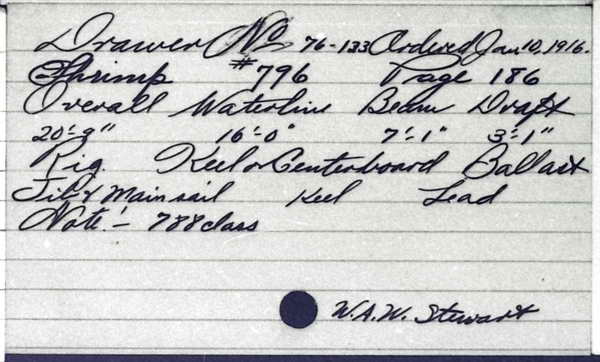 Drawer No 76-133 Ordered Jan 10, 1916.
Shrimp #796 Page 186
Overall Waterline Beam Draft
20'-9" 16'-0" 7'-1" 3'-1"
Rig Keel or Centerboard Ballast
Jib & Mainsail Keel Lead
Note:- 788 class
W.A.W. Stewart